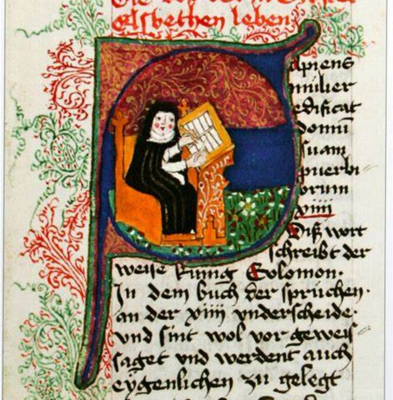 Elsbethen leben
Sapiens
mulier
edificat
domū
suam
puerbi
orum
xiiii
Diß wort
schreibt der
weise kunig Solomon·
In dem buch der spruchen·
an der xiiii vnderscheide·
vnd sint wol vor geweis
saget vnd werdent auch
eygenlichen zu gelegt